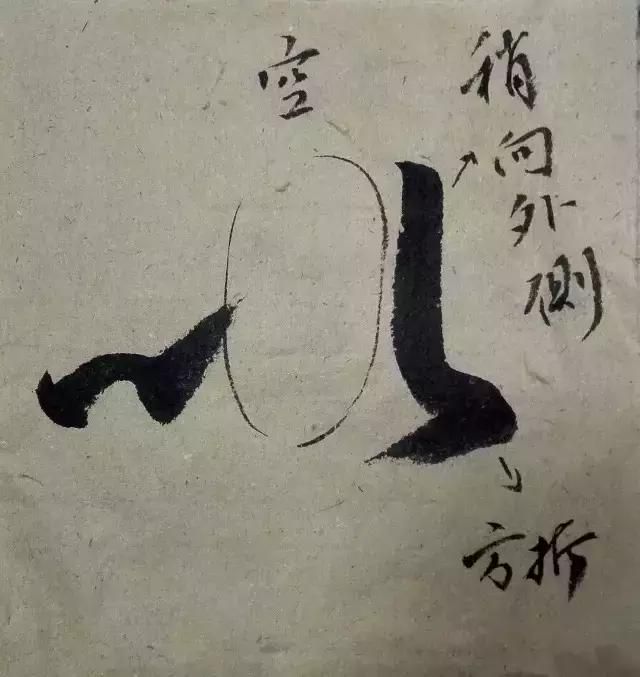 空
稍向外側
方折